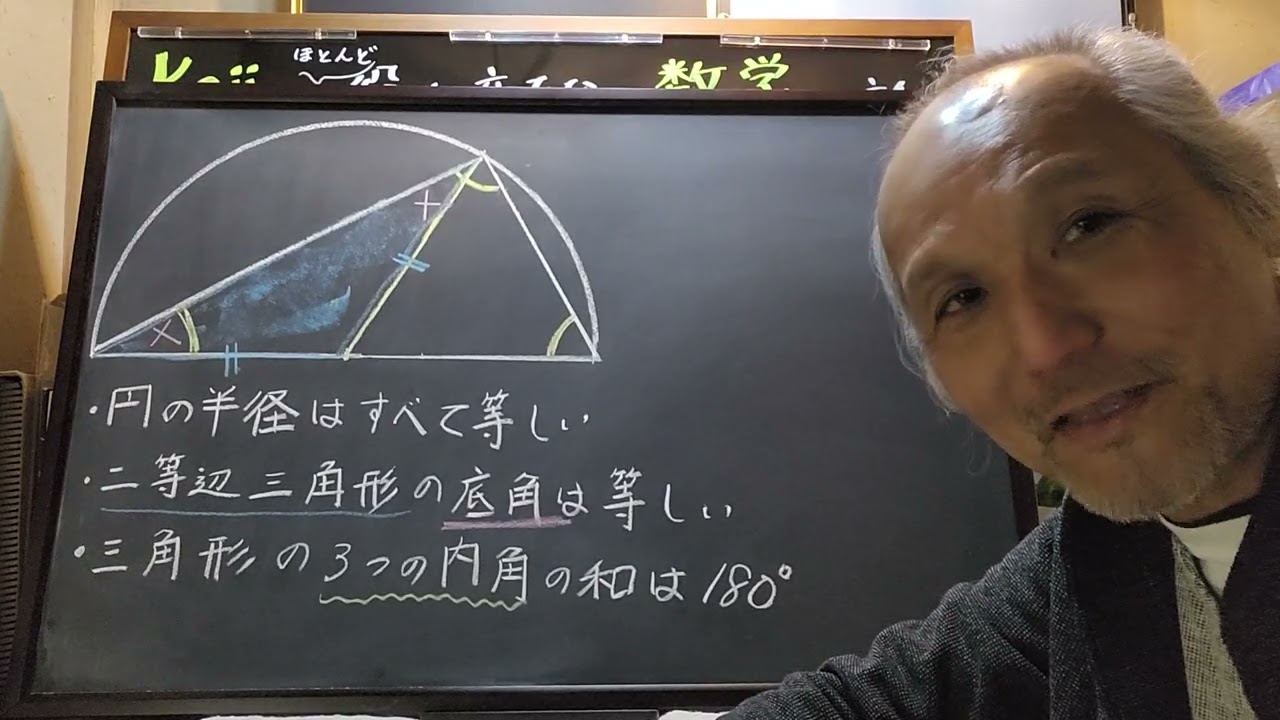 Koji
ほとんど
数学
・円の半径はすべて等しい
・二等辺三角形の底角は等しい
・三角形の3つの内角の和は180°